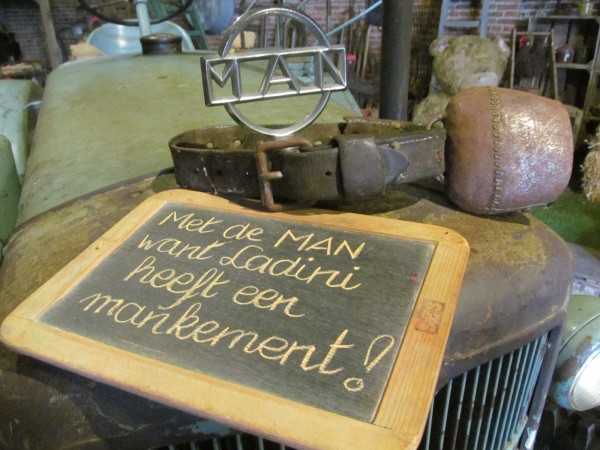 MAN
Met de MAN
want Ladini
heeft een
mankement!